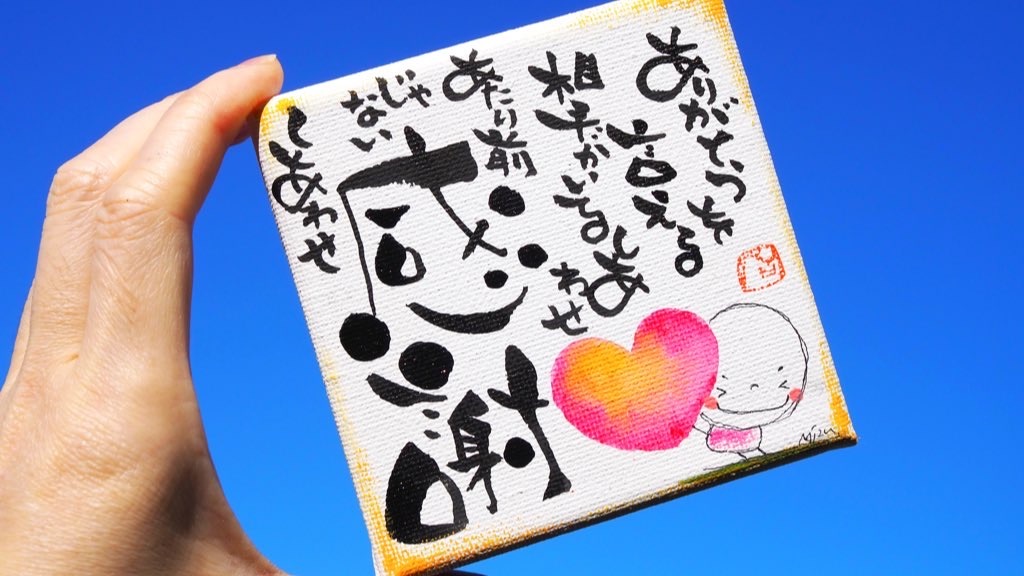 ありがとうを
言える
相手がいる
しあ
わせ
あたり前
じゃ
ない
しあわせ
感謝